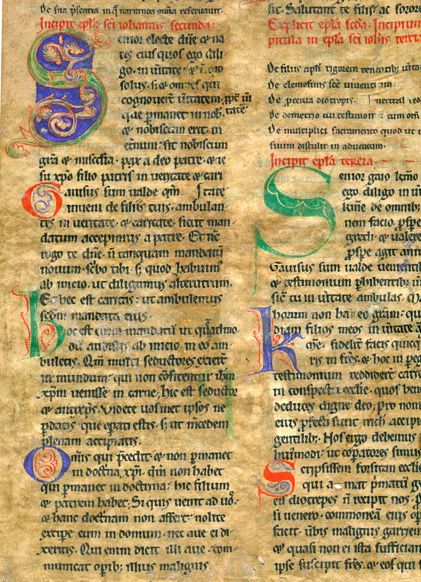 De sua presentia in
Incipit epla sci iohannis secunda:
Senior electe dñe & na
tis eius quos ego dili
go in ueritate & non ego
solus, s; & oms qui
cognouert ueritatem, ppt ueri
que pmanet in nob, tate
& nobiscum erit in
eternum. Sit nobiscum
gra & miscdia, pax a deo patre & ie
su xpo filio patris in ueritate & cari
Gauisus sum ualde qm tate
inueni de filiis tuis, ambulan
tes in ueritate & caritate, sicut man
datum accepimus a patre. Et nc
rogo te dñe, ñ tanquam mandatū
nouum scbo tibi, s; quod habuim
ab inicio, ut diligamus altrutrum.
Et hec est caritas, ut ambulemus
scdm mandata eius.
Hoc est enim mandatū ut quēadmo
dū audistis ab inicio, in eo am
buletis. Qm multi seductores exiert
in mundum, qui non cfitent ihm
xpm uenisse in carne; hic est seductor
& antixps. Videte uosmet ipsos ne
pdatis que opati estis, s; ut mcedem
plenam accipiatis.
Omis qui pcedit & non pmanet
in doctna xpi, dm non habet
qui pmanet in doctrina, hic filium
& patrem habet. Si quis uenit ad uos
& hanc doctnam non affert, nolite
recipe eum in domum, nec aue ei di
xeritis. Qui enim dicit illi aue, com
municat opib; illius malignis.
dic. Salutant te filii ac soror
Explicit epla scda. Incipiunt
pitula in epistola sci iohis tertia
De filiis apli
De elemosinis
De demetrio cui testimon
De multiplici sacramento quod ut
suum distulit in aduentum.
Incipit epla tercia.
Senior gaio
ego diligo in
kme de omnib
nem facio, pspe
gredi & ualere
pspe agit
Gauisus sum ualde uenientib
& testimonium phibentib;
sic tu in ueritate ambulas.
horum non habeo gram, qu
diam filios meos in ueritate
Kme, fidelit facis quicq
ris in frēs, & hoc in peg
testimonium reddidert
in conspectu ecclie, quos ben
deduces digne deo, p nom
eius pfecti sunt nichil accip
gentilib; Nos ergo debemus
huiusmodi, ut coopatores sim
Scripsissem forsitan ecclie
qui amat pmatū g
diotrepes ñ recipit nos. P
si uenero, commonea eius op
facit, uerbis malignis garriens
& quasi non ei ista sufficiant
ipse suscipit frēs, & eos